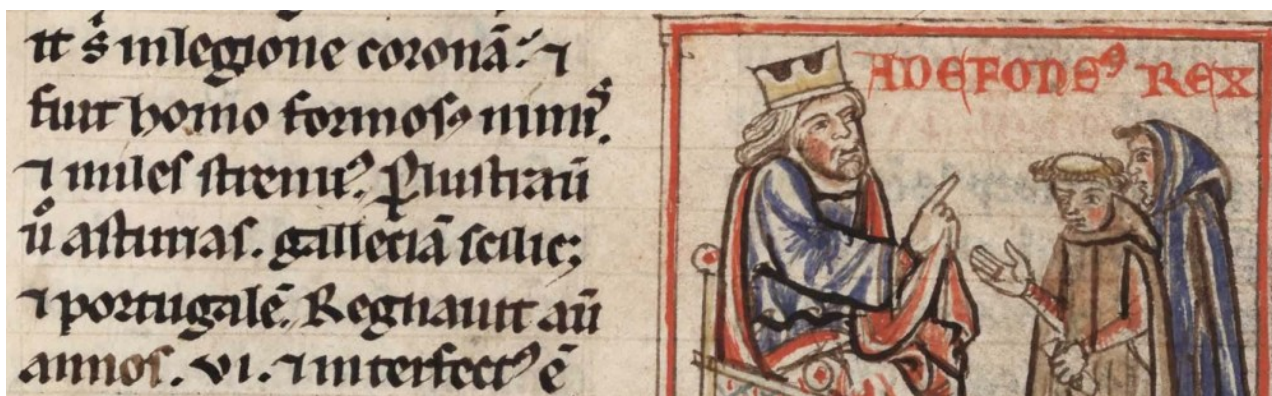 tt s̄ in legione coronā. ⁊
fuit homo formosꝰ nimiꝰ.
⁊ miles strenuꝰ. Ꝑlustrauı̄
ů asturias. galleciā scilic;
⁊ portugalē. Regnauit aū
annos. vi. ⁊ interfectꝰ ē
ADEFONSꝰ REX